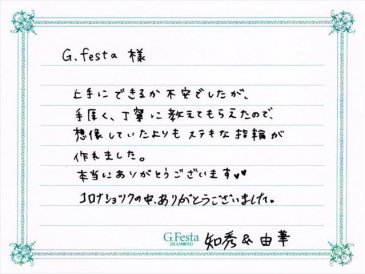 G.festa 様
上手にできるか不安でしたが、
手厚く、丁寧に教えてもらえたので、
想像していたよりもステキな指輪が
作れました。
本当にありがとうございます♥♥
コロナショックの中、ありがとうございました。
G.Festa
DIAMOND
知秀&由華